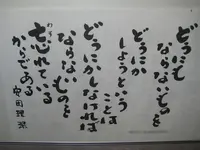 どうにも
ならないものを
どうにか
しようという
ことは
どうにかしなければ
ならないものを
忘れている
からである
安田理深